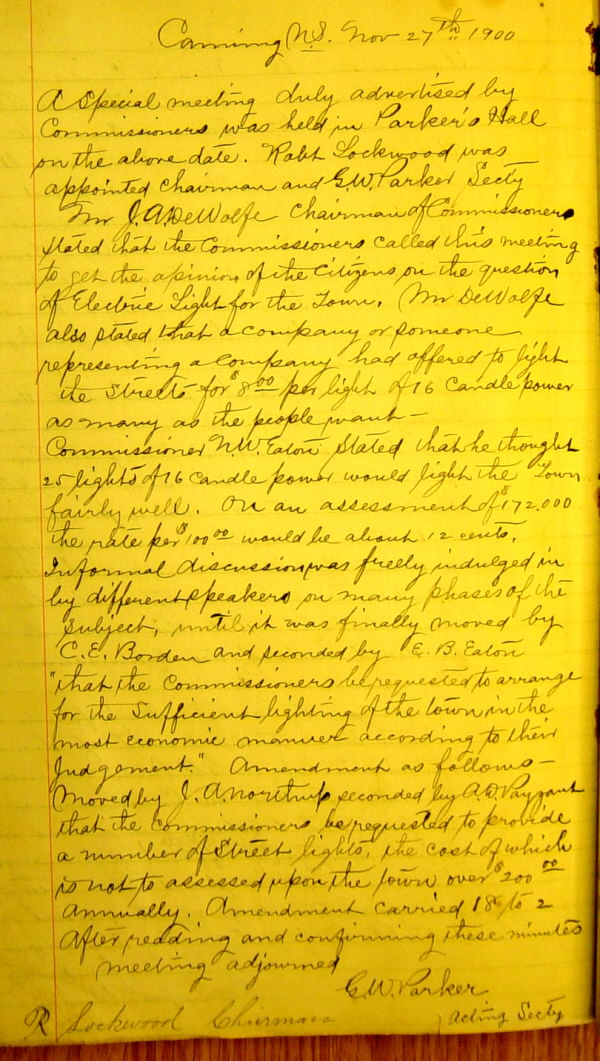 Canning N.S. Nov 27th 1900
A Special meeting duly advertised by
Commissioners was held in Parker's Hall
on the above date. Robt Lockwood was
appointed Chairman and G.W. Parker Secty
Mr J.A. DeWolfe Chairman of Commissioners
stated that the Commissioners called this meeting
to get the opinion of the Citizens on the question
of Electric Light for the Town. Mr DeWolfe
also stated that a company or someone
representing a Company had offered to light
the Streets for $8.00 per light of 16 Candle power
as many as the people want -
Commissioner N.W. Eaton stated that he thought
25 lights of 16 candle power would light the Town
fairly well. On an assessment of $172.000
the rate per $100.00 would be about 12 cents.
Informal discussion was freely indulged in
by different speakers on many phases of the
Subject, until it was finally moved by
C.E. Borden and seconded by E.B. Eaton
"that the Commissioners be requested to arrange
for the Sufficient lighting of the town in the
most economic manner according to their
Judgement." Amendment as follows -
Moved by J.A. Northup seconded by A.D. Payzant
that the Commissioners be requested to provide
a number of Street lights, the cost of which
is not to assessed upon the town over $200.00
annually. Amendment carried 18 to 2
After reading and confirming these minutes
meeting adjourned
G.W. Parker
Acting Secty
R Lockwood Chairman